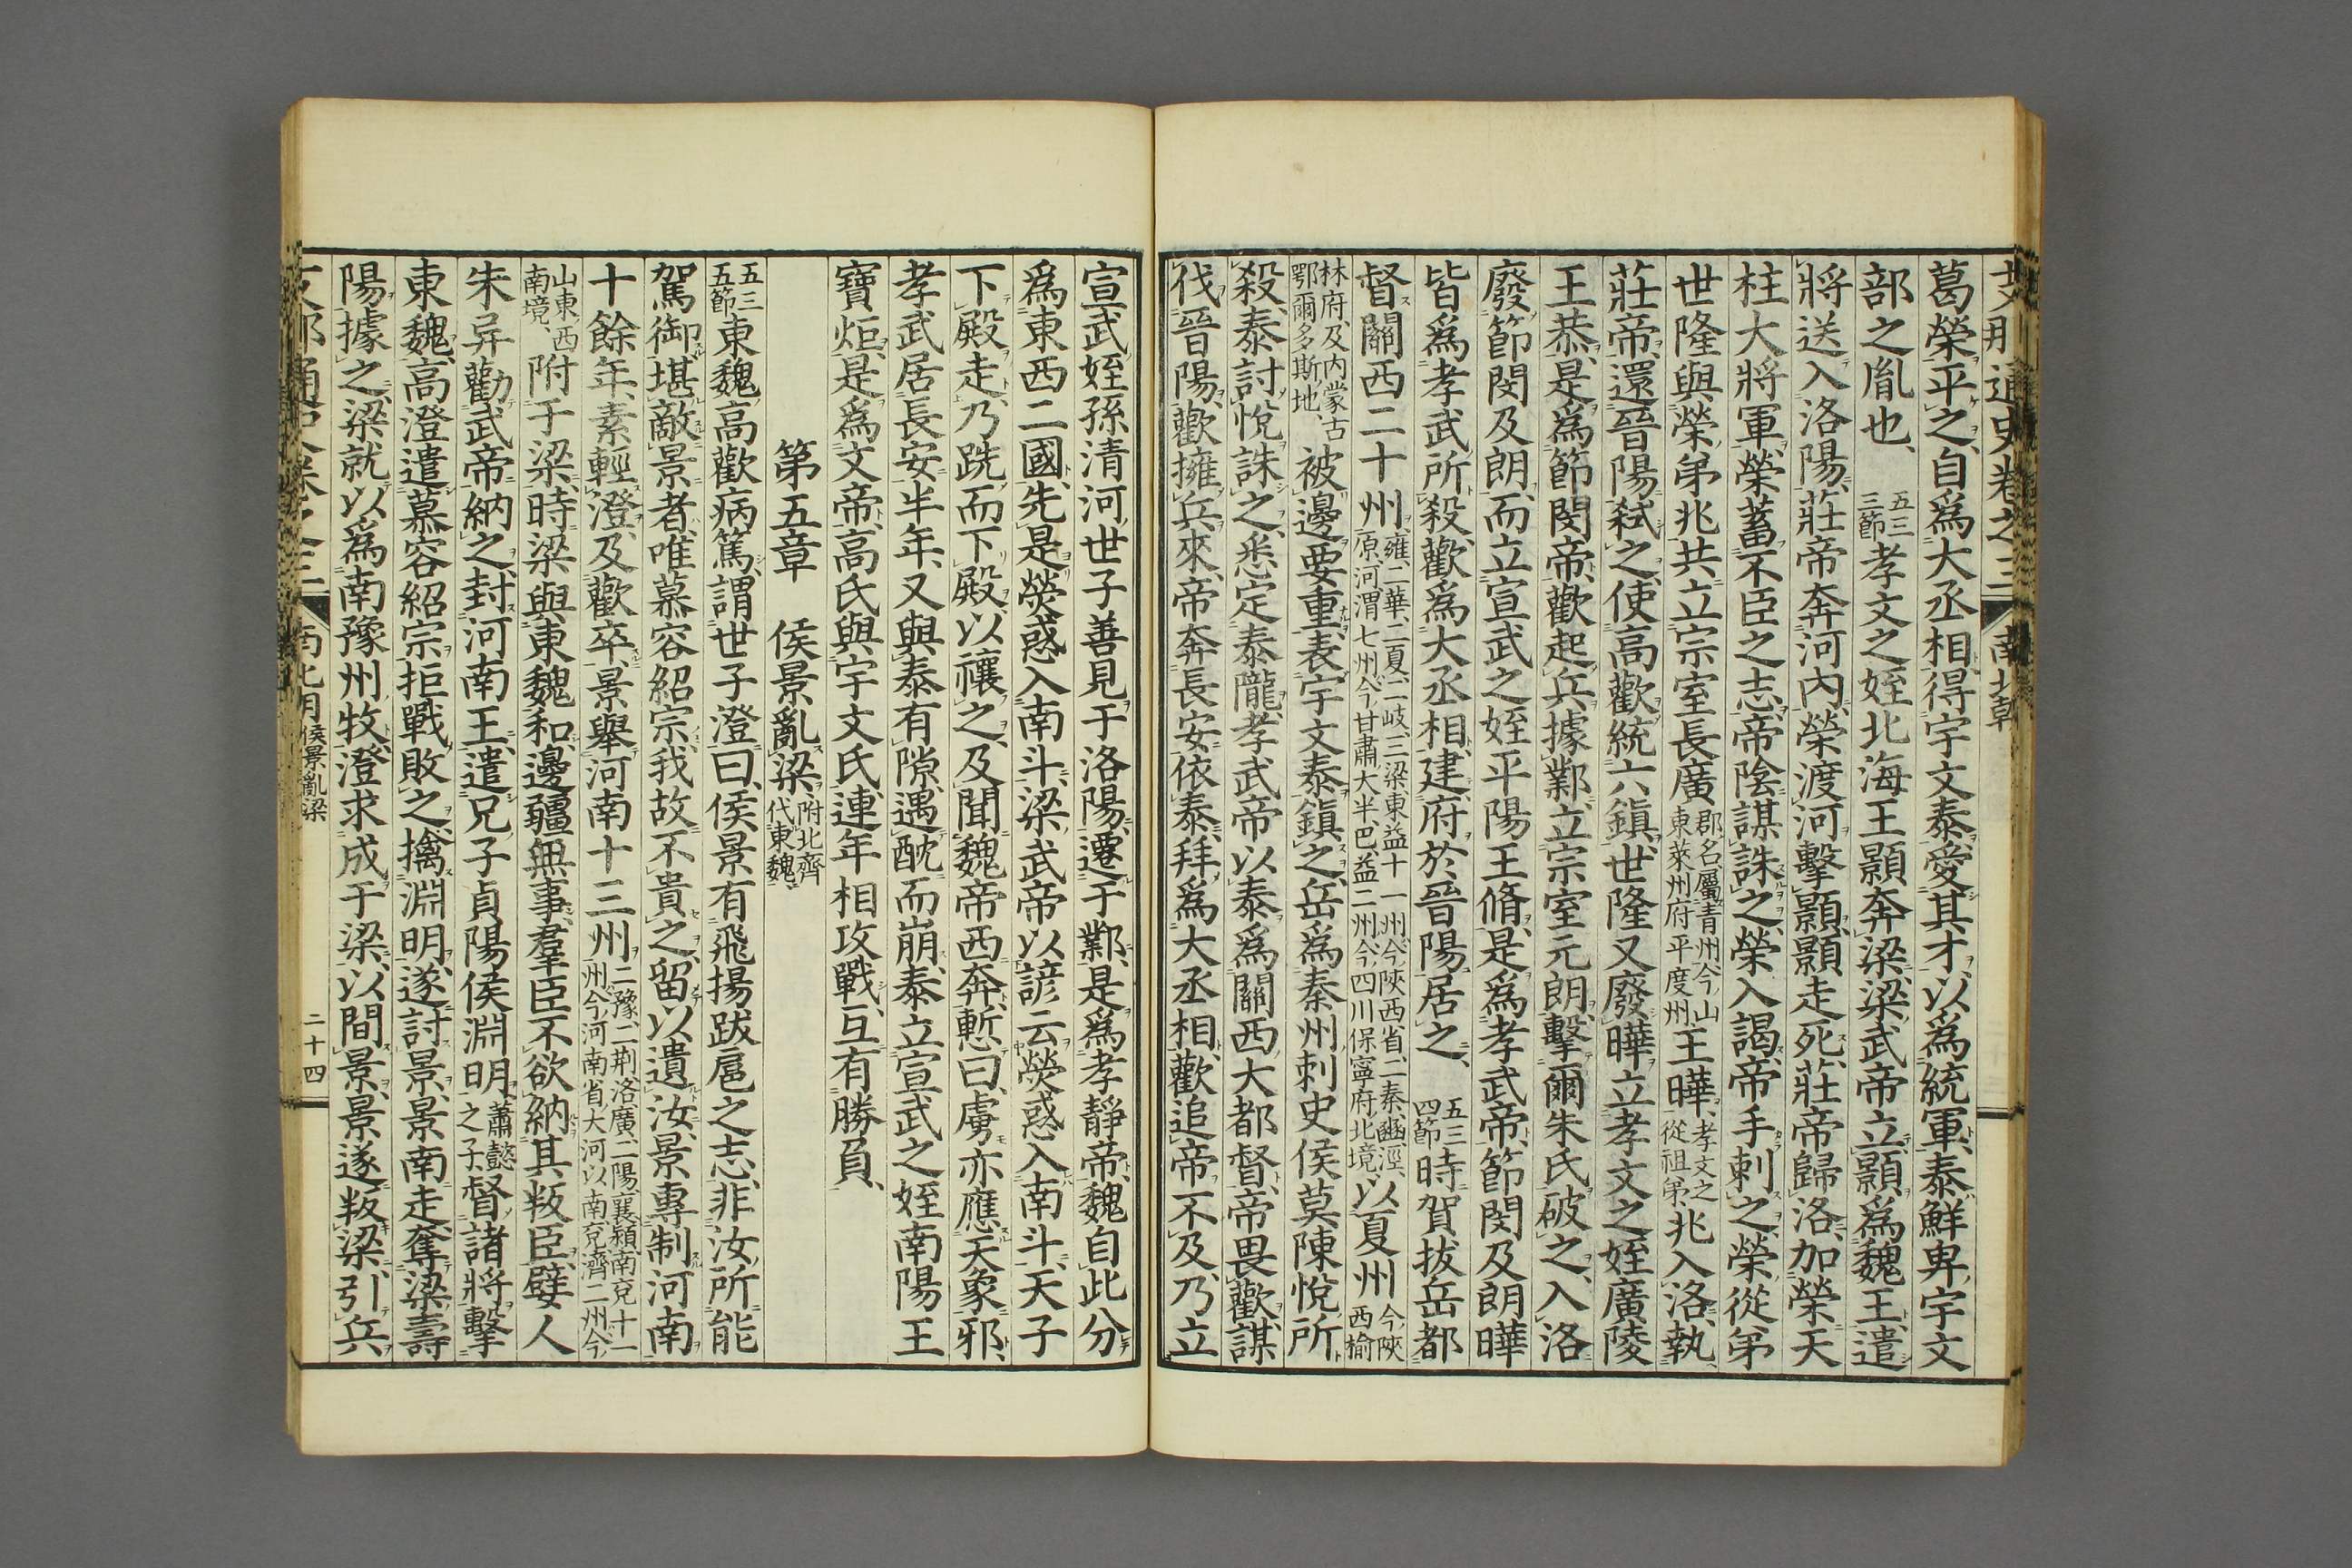 支那通史卷之三 南北朝
葛榮平之自爲大丞相得宇文泰愛其才以爲統軍泰鮮卑宇文
部之胤也、五三三節孝文之姪北海王顥奔梁梁武帝立顥爲魏王遣
將送入洛陽莊帝奔河內榮渡河擊顥顥走死莊帝歸洛加榮天
柱大將軍榮蓄不臣之志帝陰謀誅之榮入謁帝手刺之榮從弟
世隆與榮弟兆共立宗室長廣郡名屬青州今山東萊州府平度州王曄孝文之從祖弟兆入洛執
莊帝還晉陽弑之使高歡統六鎮世隆又廢曄立孝文之姪廣陵
王恭是爲節閔帝歡起兵據鄴立宗室元朗擊爾朱氏破之入洛
廢節閔及朗而立宣武之姪平陽王脩是爲孝武帝節閔及朗曄
皆爲孝武所殺歡爲大丞相建府於晉陽居之、五三四節時賀拔岳都
督關西二十州雍二華二夏二岐三梁東益十一州今陝西省二秦豳涇原河渭七州今甘肅大半巴益二州今四川保寧府北境以夏州今陝西榆
林府及內蒙古鄂爾多斯地被邊要重表宇文泰鎮之岳爲秦州刺史侯莫陳悅所
殺泰討悅誅之悉定秦隴孝武帝以泰爲關西大都督帝畏歡謀
伐晉陽歡擁兵來帝奔長安依泰拜爲大丞相歡追帝不及乃立
宣武姪孫清河世子善見于洛陽遷于鄴是爲孝靜帝魏自此分
爲東西二國先是熒惑入南斗梁武帝以諺云熒惑入南斗天子
下殿走乃跣而下殿以禳之及聞魏帝西奔慙曰虜亦應天象邪、
孝武居長安半年又與泰有隙遇酖而崩泰立宣武之姪南陽王
寶炬是爲文帝高氏與宇文氏連年相攻戰互有勝負、
第五章 侯景亂梁附北齊代東魏
五三五節東魏高歡病篤謂世子澄曰侯景有飛揚跋扈之志非汝所能
駕御堪敵景者唯慕容紹宗我故不貴之留以遺汝景專制河南
十餘年素輕澄及歡卒景擧河南十三州二豫二荊洛廣二陽襄潁南兗十一州今河南省大河以南兗濟二州今
山東西南境附于梁時梁與東魏和邊疆無事羣臣不欲納其叛臣嬖人
朱异勸武帝納之封河南王遣兄子貞陽侯淵明蕭懿之子督諸將擊
東魏高澄遣慕容紹宗拒戰敗之擒淵明遂討景景南走奪梁壽
陽據之梁就以爲南豫州牧澄求成于梁以間景景遂叛梁引兵
支那通史卷之三 南北朝 侯景亂梁 二十四